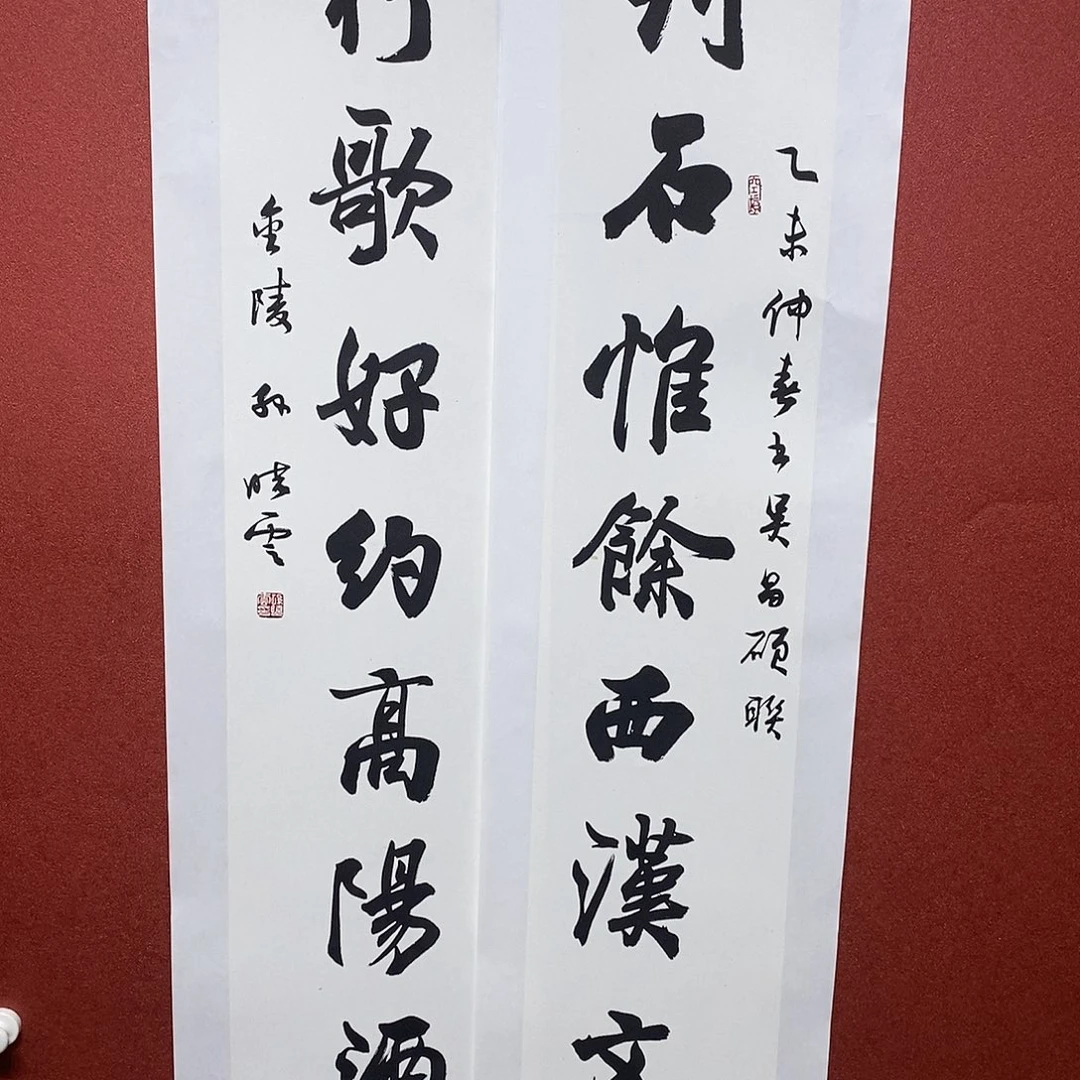 乙未仲春书吴昌硕联
石惟餘西漢文
行歌好约高陽酒
金陵孙晓云